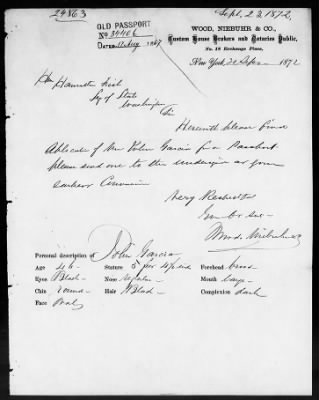 24863
Sept. 23, 1872,
OLD PASSPORT
No 34406
Dated 11 Aug 1867
WOOD, NIEBUHR & CO.,
Custom House Brokers and Notaries Public,
No. 18 Exchange Place,
New York, 1872
Hon Hamilton Fish
Sy of State
Washington
Sir
Herewith please find
Applicatn of Mr John Garcia for a Passport
please send one to the undersign at your
earliest
Very Respectfy
Your ob sevt
Wood Niebuhr & Co
Personal description of John Garcia
Age 46
Stature 5 feet
Forehead broad
Eyes Black
Nose regular
Mouth large
Chin round
Hair Black
Complexion dark
Face Oval